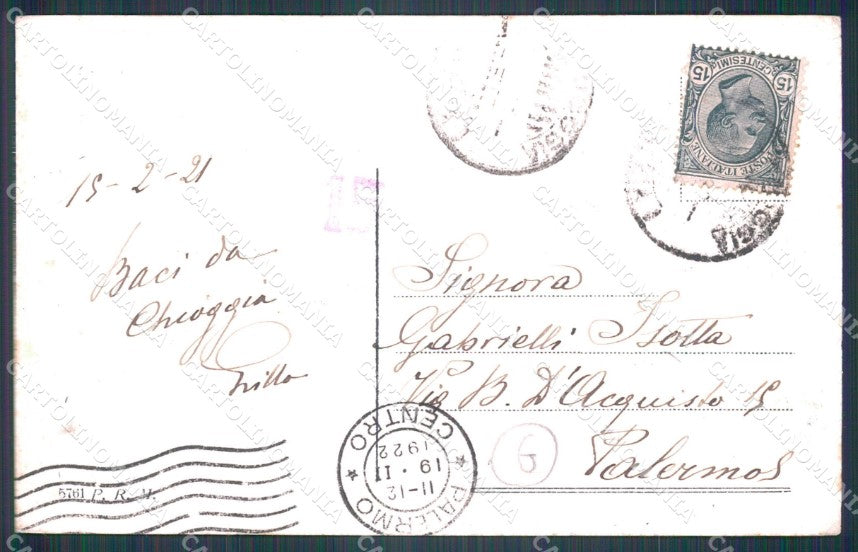 15-2-21
Baci da
Chioggia
Signora
Gabrielli Isotta
Via B. D'Acquisto 15
Palermo
15
15
CENTESIMI
POSTE ITALIANE
PALERMO * CENTRO *
11-12
19 · II
1922
5761 P. R. M.
6
CARTOLINOMANIA